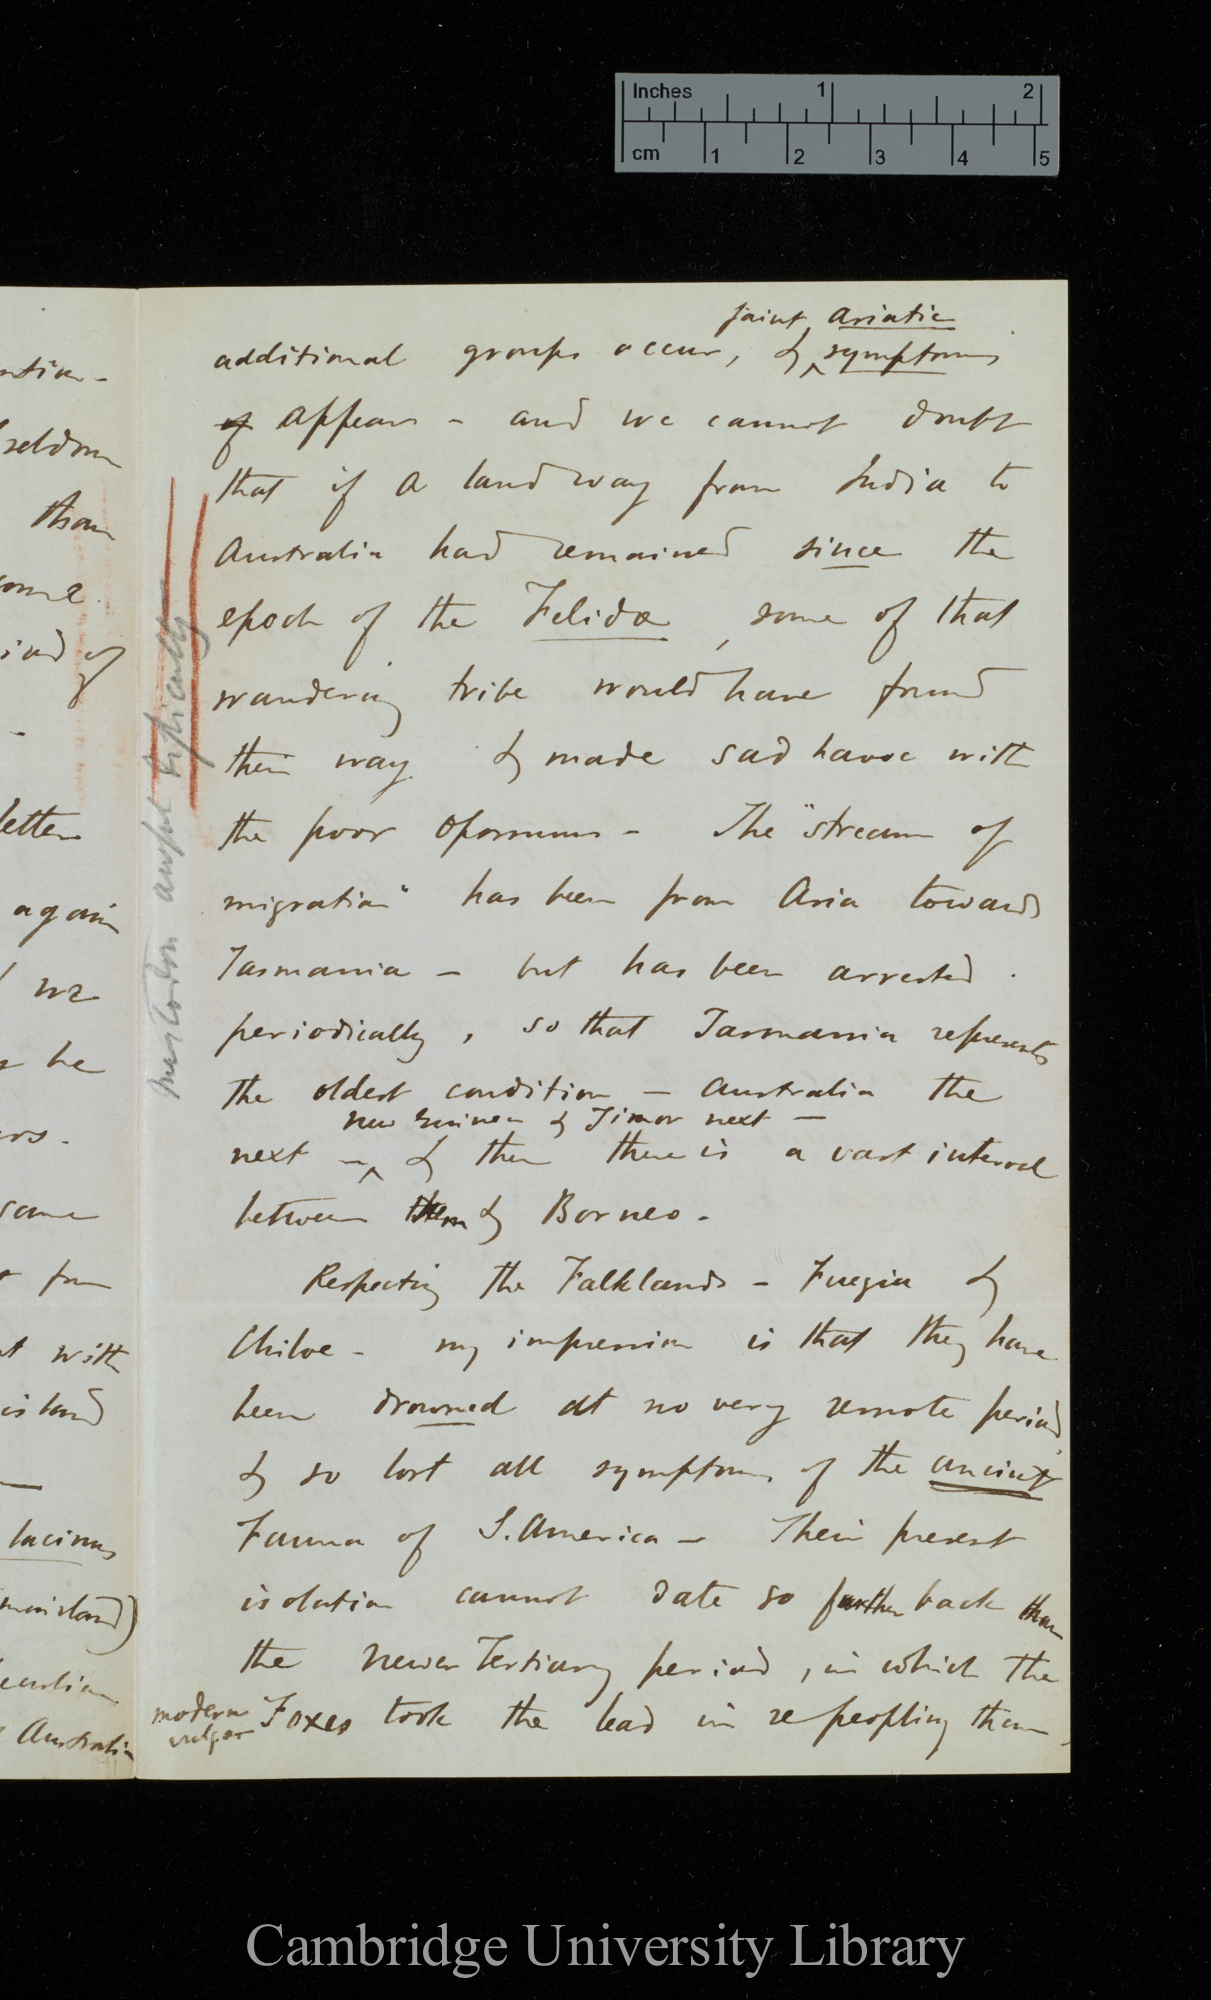 Inches 1 2
cm 1 2 3 4 5
ntion -
seldom
than
some
iod of
-
letter
again
we
he
ers.
same
t for
at with
island
lacinus
mainland)
Australia
faint Asiatic
additional groups occur, & symptoms
of appear - and we cannot doubt
that if a land way from India to
Australia had remained since the
epoch of the Felidæ, some of that
wandering tribe would have found
their way & made sad havoc with
the poor opossums - The "stream of
migration" has been from Asia towards
Tasmania - but has been arrested
periodically, so that Tasmania represents
the oldest condition - Australia the
New Guinea & Timor next -
next - & then there is a vast interval
between them & Borneo.
Respecting the Falklands - Fuegia &
Chiloe - my impression is that they have
been drowned at no very remote period
& so lost all symptoms of the ancient
Fauna of S. America - Their present
isolation cannot date so further back than
the newer Tertiary period, in which the
modern
vulgar
Foxes took the lead in repeopling them,
Mastodon awful difficulty
Cambridge University Library